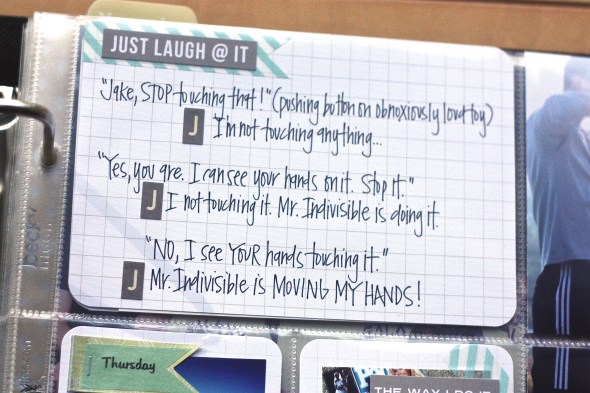 JUST LAUGH @ IT
"Jake, STOP touching that!" (pushing button on obnoxiously loud toy)
J I'm not touching anything...
"Yes, you are. I can see your hands on it. Stop it."
J I not touching it. Mr. Indivisible is doing it.
"NO, I see YOUR hands touching it."
J Mr. Indivisible is MOVING MY HANDS!
Thursday
THE WAY I DO IT